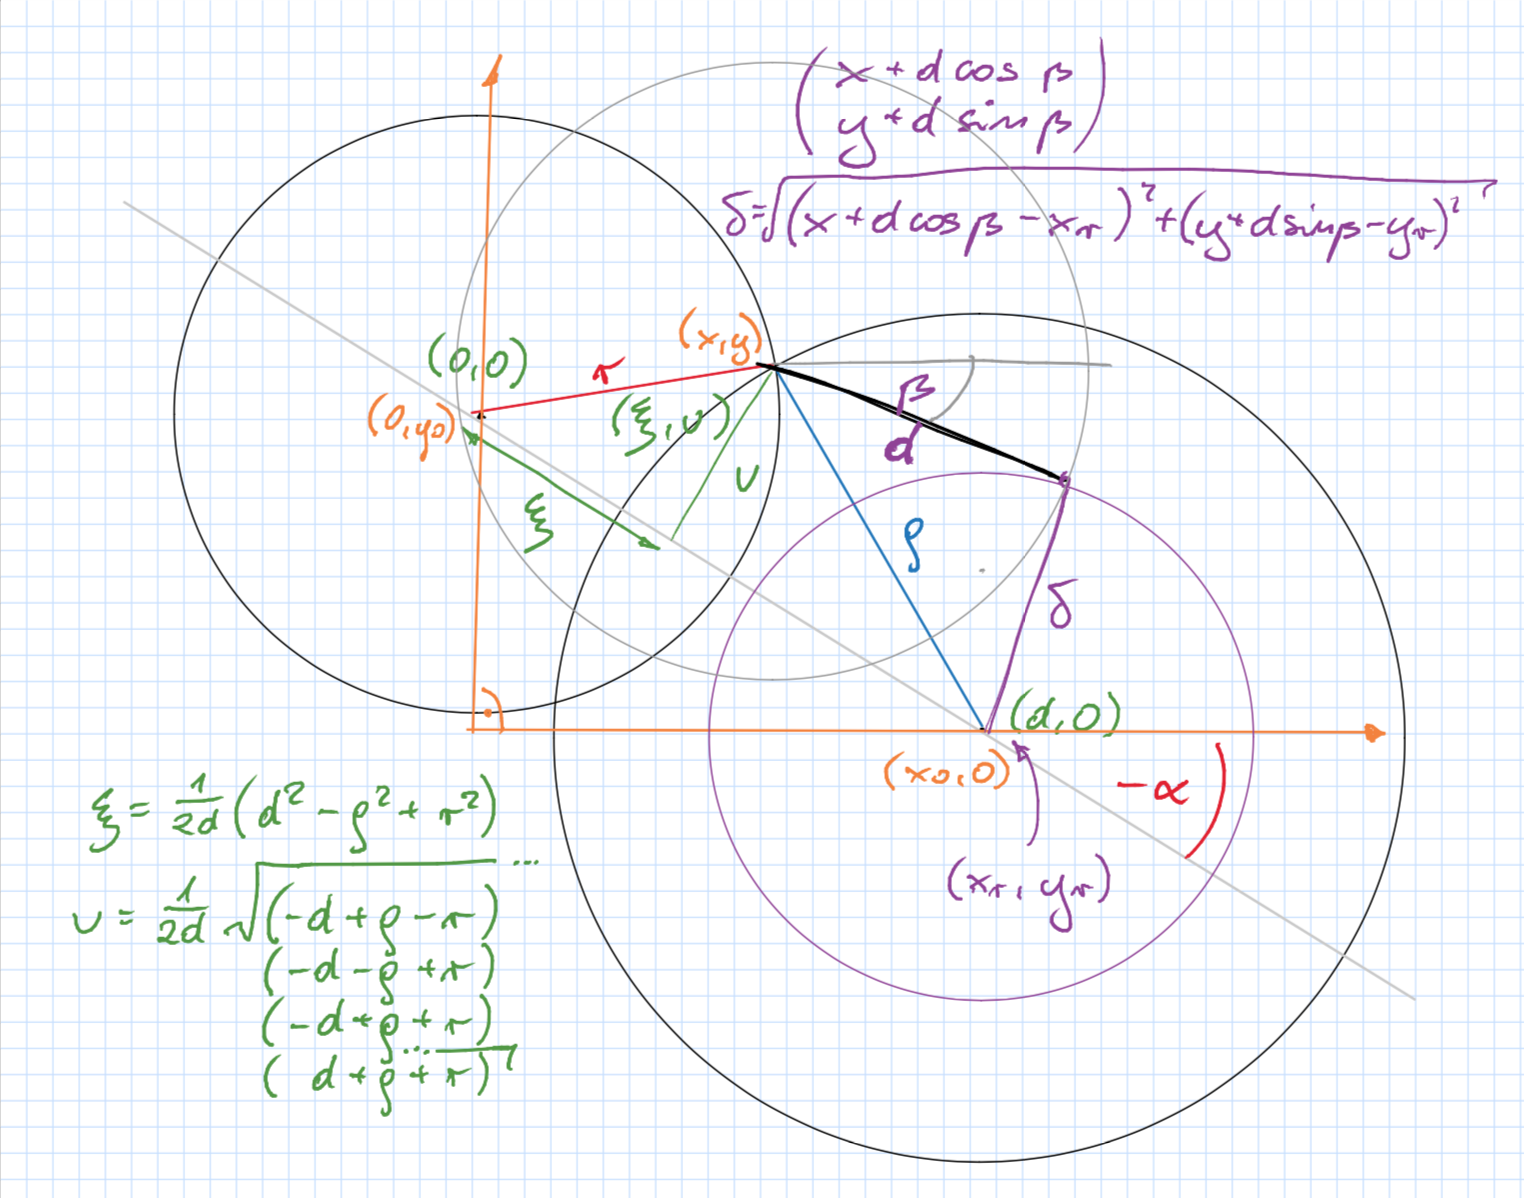 (x + d cos β
y + d sin β)
δ=√(x + d cos β - xᵣ)² + (y + d sin β - yᵣ)²
(x, y)
(0, 0)
r
(0, y₀)
(ξ, υ)
β
d
υ
ξ
ρ
δ
(d, 0)
(x₀, 0)
-α
ξ = 1/2d (d² - ρ² + r²)
(xᵣ, yᵣ)
υ = 1/2d √(-d + ρ - r) ...
(-d - ρ + r)
(-d + ρ + r)
... (d + ρ + r)